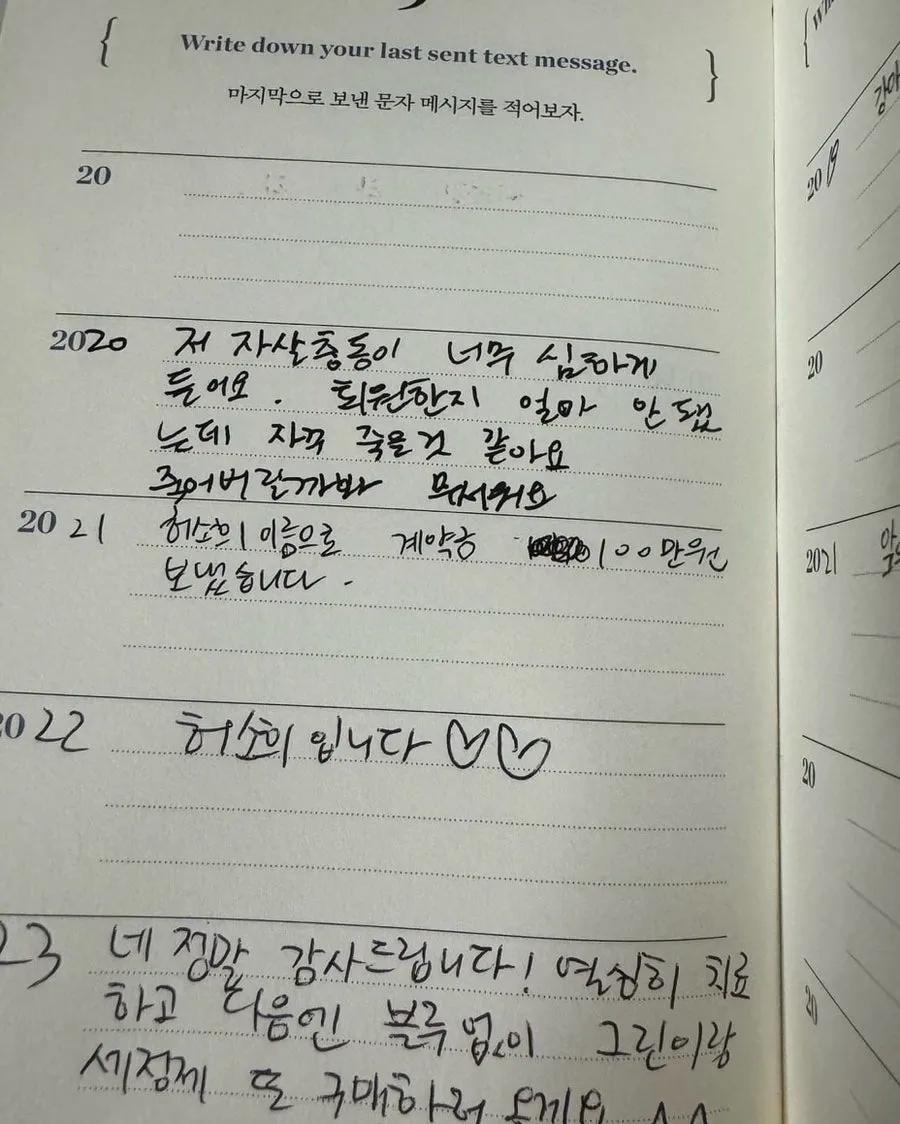 Write down your last sent text message.
마지막으로 보낸 문자 메시지를 적어보자.
20
2020 저 자살충동이 너무 심하게
들어요. 퇴원한지 얼마 안 됐
는데 자꾸 죽을것 같아요
죽어버릴까봐 무서워요
2021 허소희 이름으로 계약금 100만원
보냈습니다.
2022 허소희입니다 ♡♡
23 네 정말 감사드립니다! 열심히 치료
하고 다음엔 블루 없이 그린이랑
세정제 또 구매하러 올게요 ^^
2019
20
2021
20
20